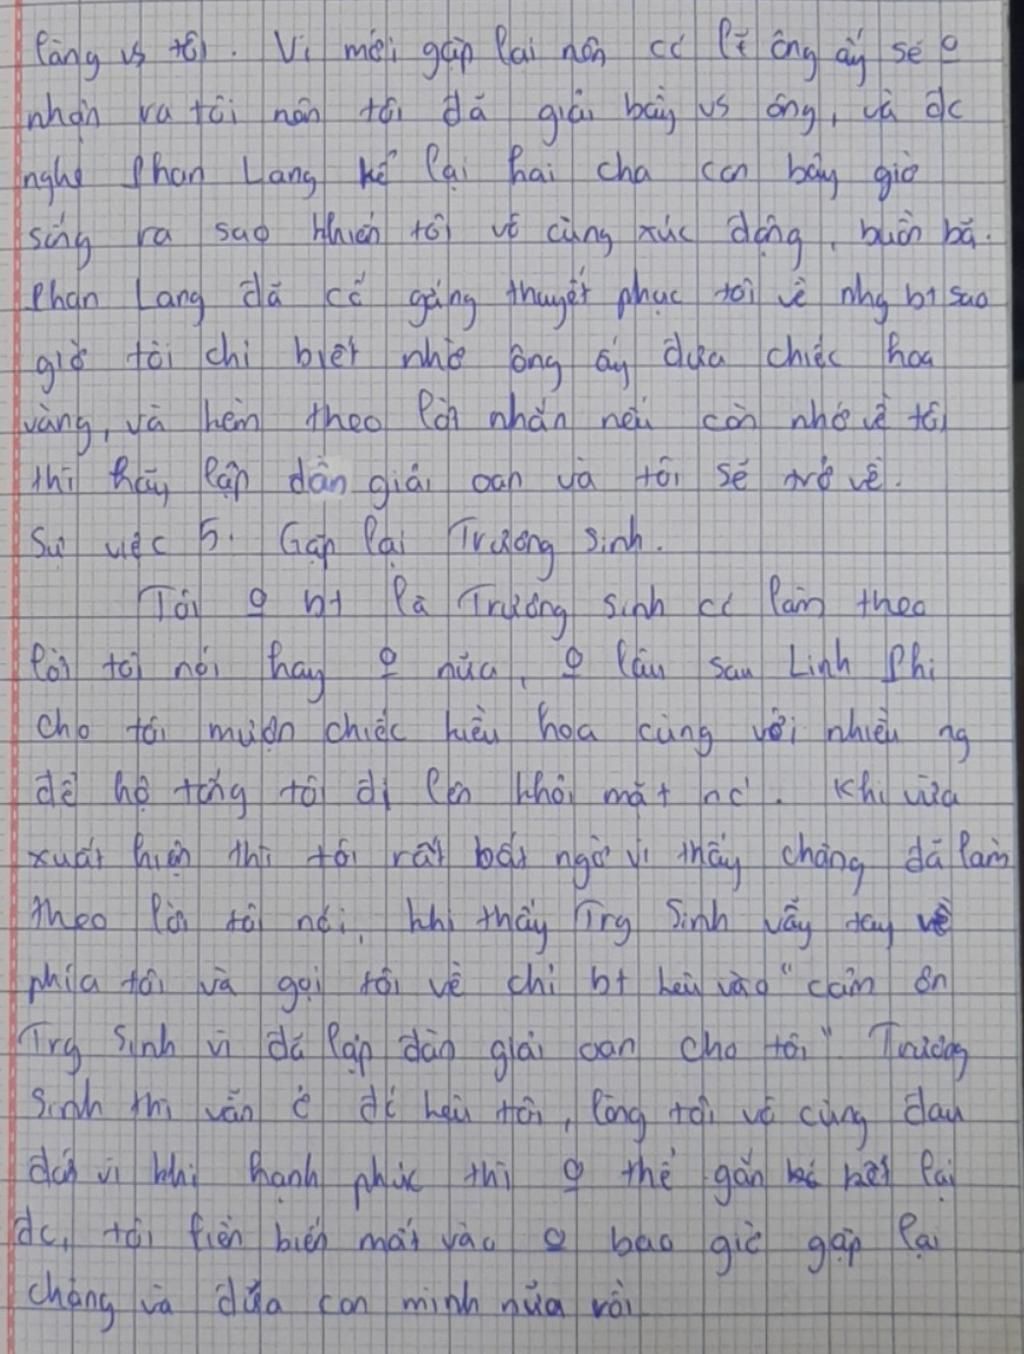 làng vs tôi. Vì mới gặp lại nên có lẽ ông ấy sẽ o
nhận ra tôi nên tôi đã giải bày vs ông, và đc
nghe Phan Lang kể lại hai cha con bây giờ
sống ra sao khiến tôi vô cùng xúc động, buồn bã.
Phan Lang đã cố gắng thuyết phục tôi về nhg bt sao
giờ tôi chỉ biết nhờ ông ấy đưa chiếc hoa
vàng, và kèm theo lời nhắn nếu còn nhớ về tôi
thì hãy lập đàn giải oan và tôi sẽ trở về.
Sự việc 5. Gặp lại Trương Sinh.
Tôi o bt là Trương Sinh có làm theo
lời tôi nói hay o nữa, o lâu sau Linh Phi
cho tôi mượn chiếc kiệu hoa cùng với nhiều ng
để hộ tống tôi đi lên khỏi mặt nc. Khi vừa
xuất hiện thì tôi rất bất ngờ vì thấy chàng đã làm
theo lời tôi nói, khi thấy Trg Sinh vẫy tay về
phía tôi và gọi tôi về chỉ bt kêu vào "cảm ơn
Trg Sinh vì đã lập đàn giải oan cho tôi" Trương
Sinh thì vẫn ở đó kêu tôi, lòng tôi vô cùng đau
đớn vì khi hạnh phúc thì o thể gắn kết lại
đc, tôi liền biến mất vào o bao giờ gặp lại
chàng và đứa con mình nữa rồi